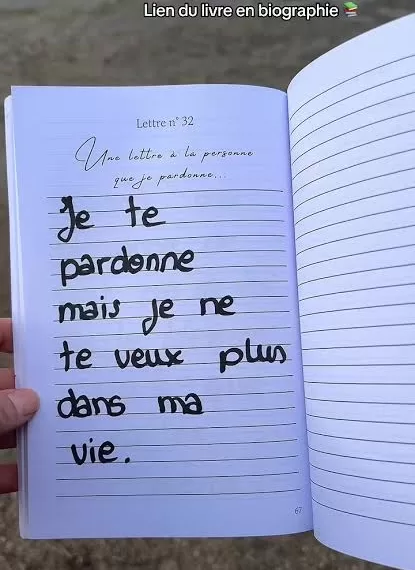 Lien du livre en biographie 📚
Lettre n° 32
Une lettre à la personne
que je pardonne...
Je te
pardonne
mais je ne
te veux plus
dans ma
vie.
67